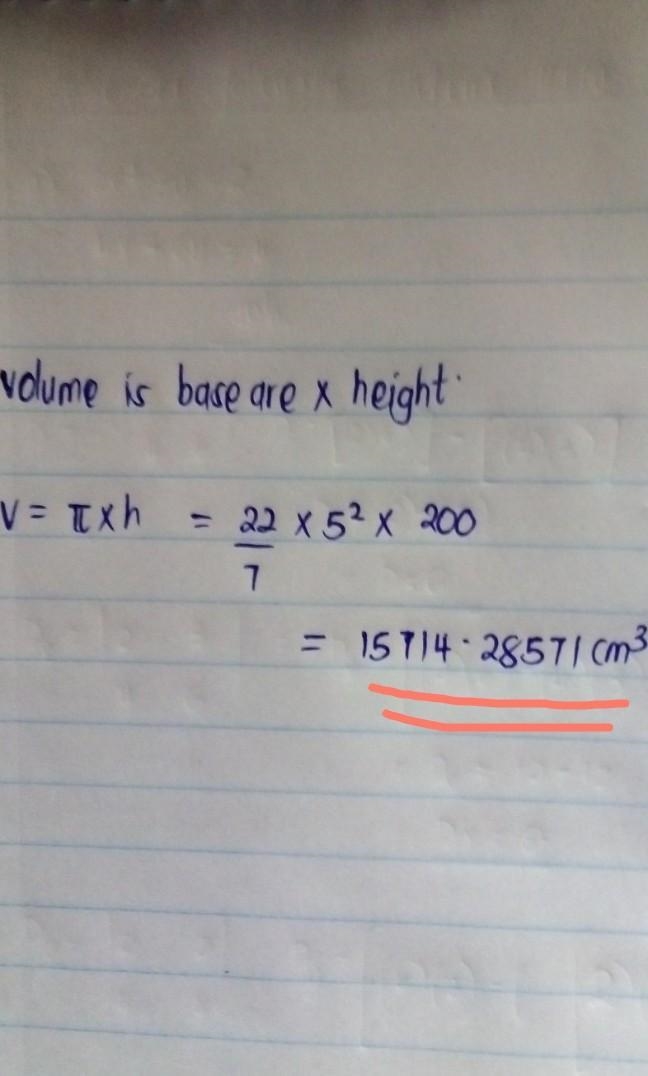 volume is base are x height.
V = π x h = 22/7 x 5² x 200
= 15714.28571 cm³